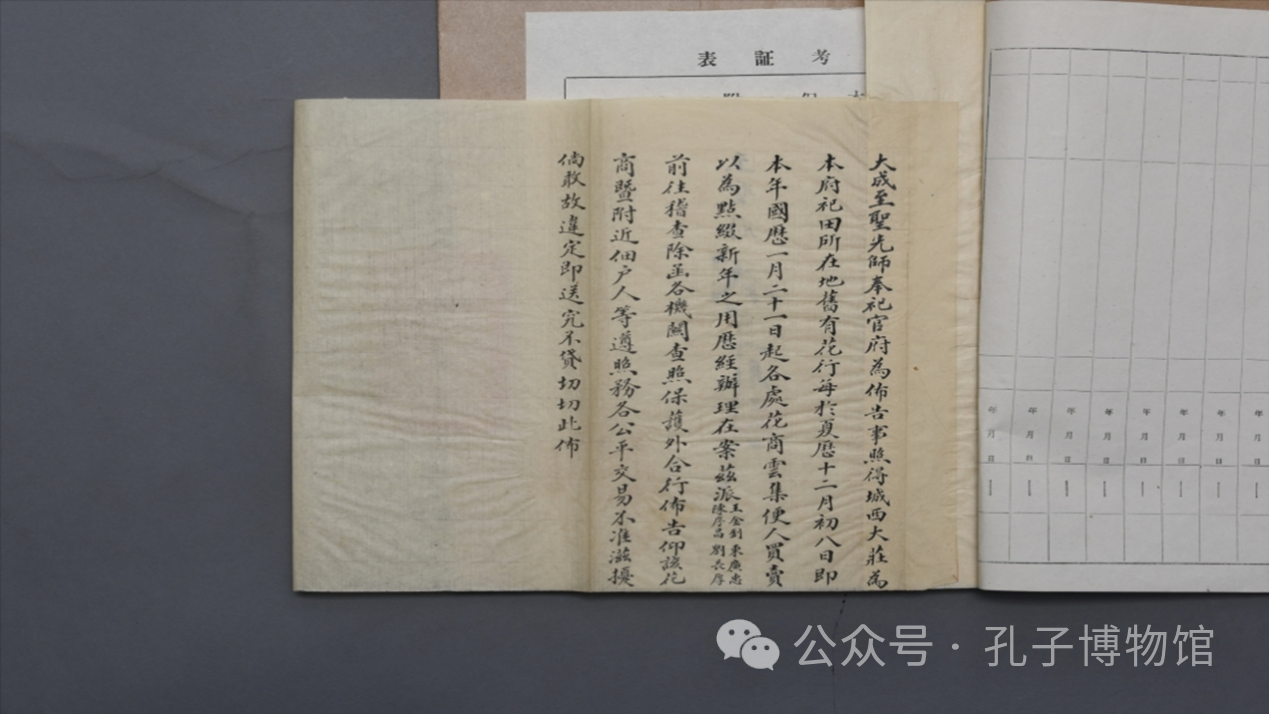 大成至聖先師奉祀官府為佈告事照得城西大莊為
本府祀田所在地舊有花行每於夏歷十二月初八日即
本年國歷一月二十一日起各處花商雲集便人買賣
以為點綴新年之用歷經辦理在案茲派
陳彥昌 劉長厚
前往稽查除函各機關查照保護外合行佈告仰該花
商暨附近佃户人等遵照務各公平交易不准滋擾
倘敢故違定即送究不貸切切此佈
考証表
年月日
年月日
年月日
年月日
年月日
年月日
年月日
年月日
公众号·孔子博物馆